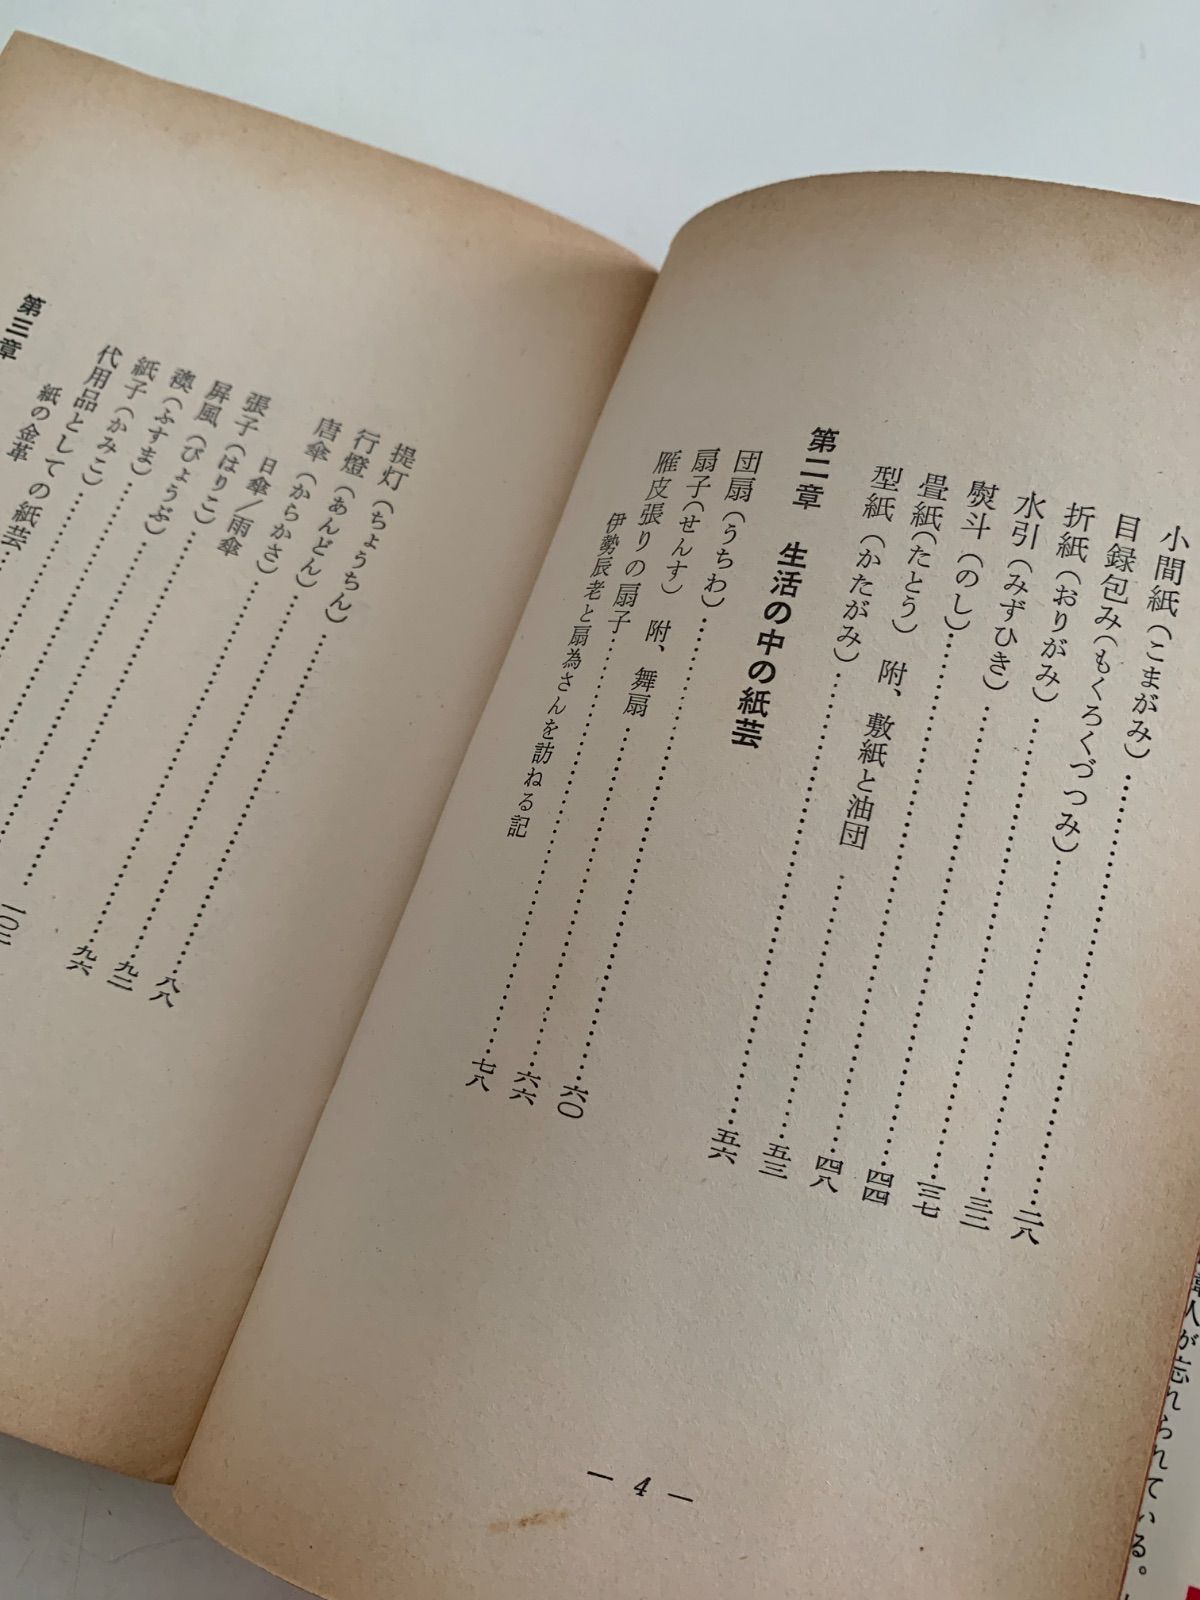 小間紙（こまがみ）……二八
目録包み（もくろくづつみ）……三二
折紙（おりがみ）……三七
水引（みずひき）……四四
熨斗（のし）……四八
畳紙（たとう）　附、敷紙と油団……五三
型紙（かたがみ）……五六
第二章　生活の中の紙芸
団扇（うちわ）……六〇
扇子（せんす）　附、舞扇……六六
雁皮張りの扇子……七八
伊勢辰老と扇為さんを訪ねる記
— 4 —
提灯（ちょうちん）……八八
行燈（あんどん）……九二
唐傘（からかさ）……九六
日傘／雨傘
張子（はりこ）……
屏風（びょうぶ）……
襖（ふすま）……
紙子（かみこ）……
代用品としての紙芸……
紙の金革
第三章
人が忘れられている。